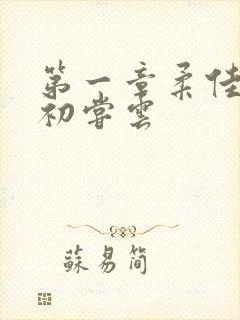 第一章柔佳
初尝雲
蘇易简